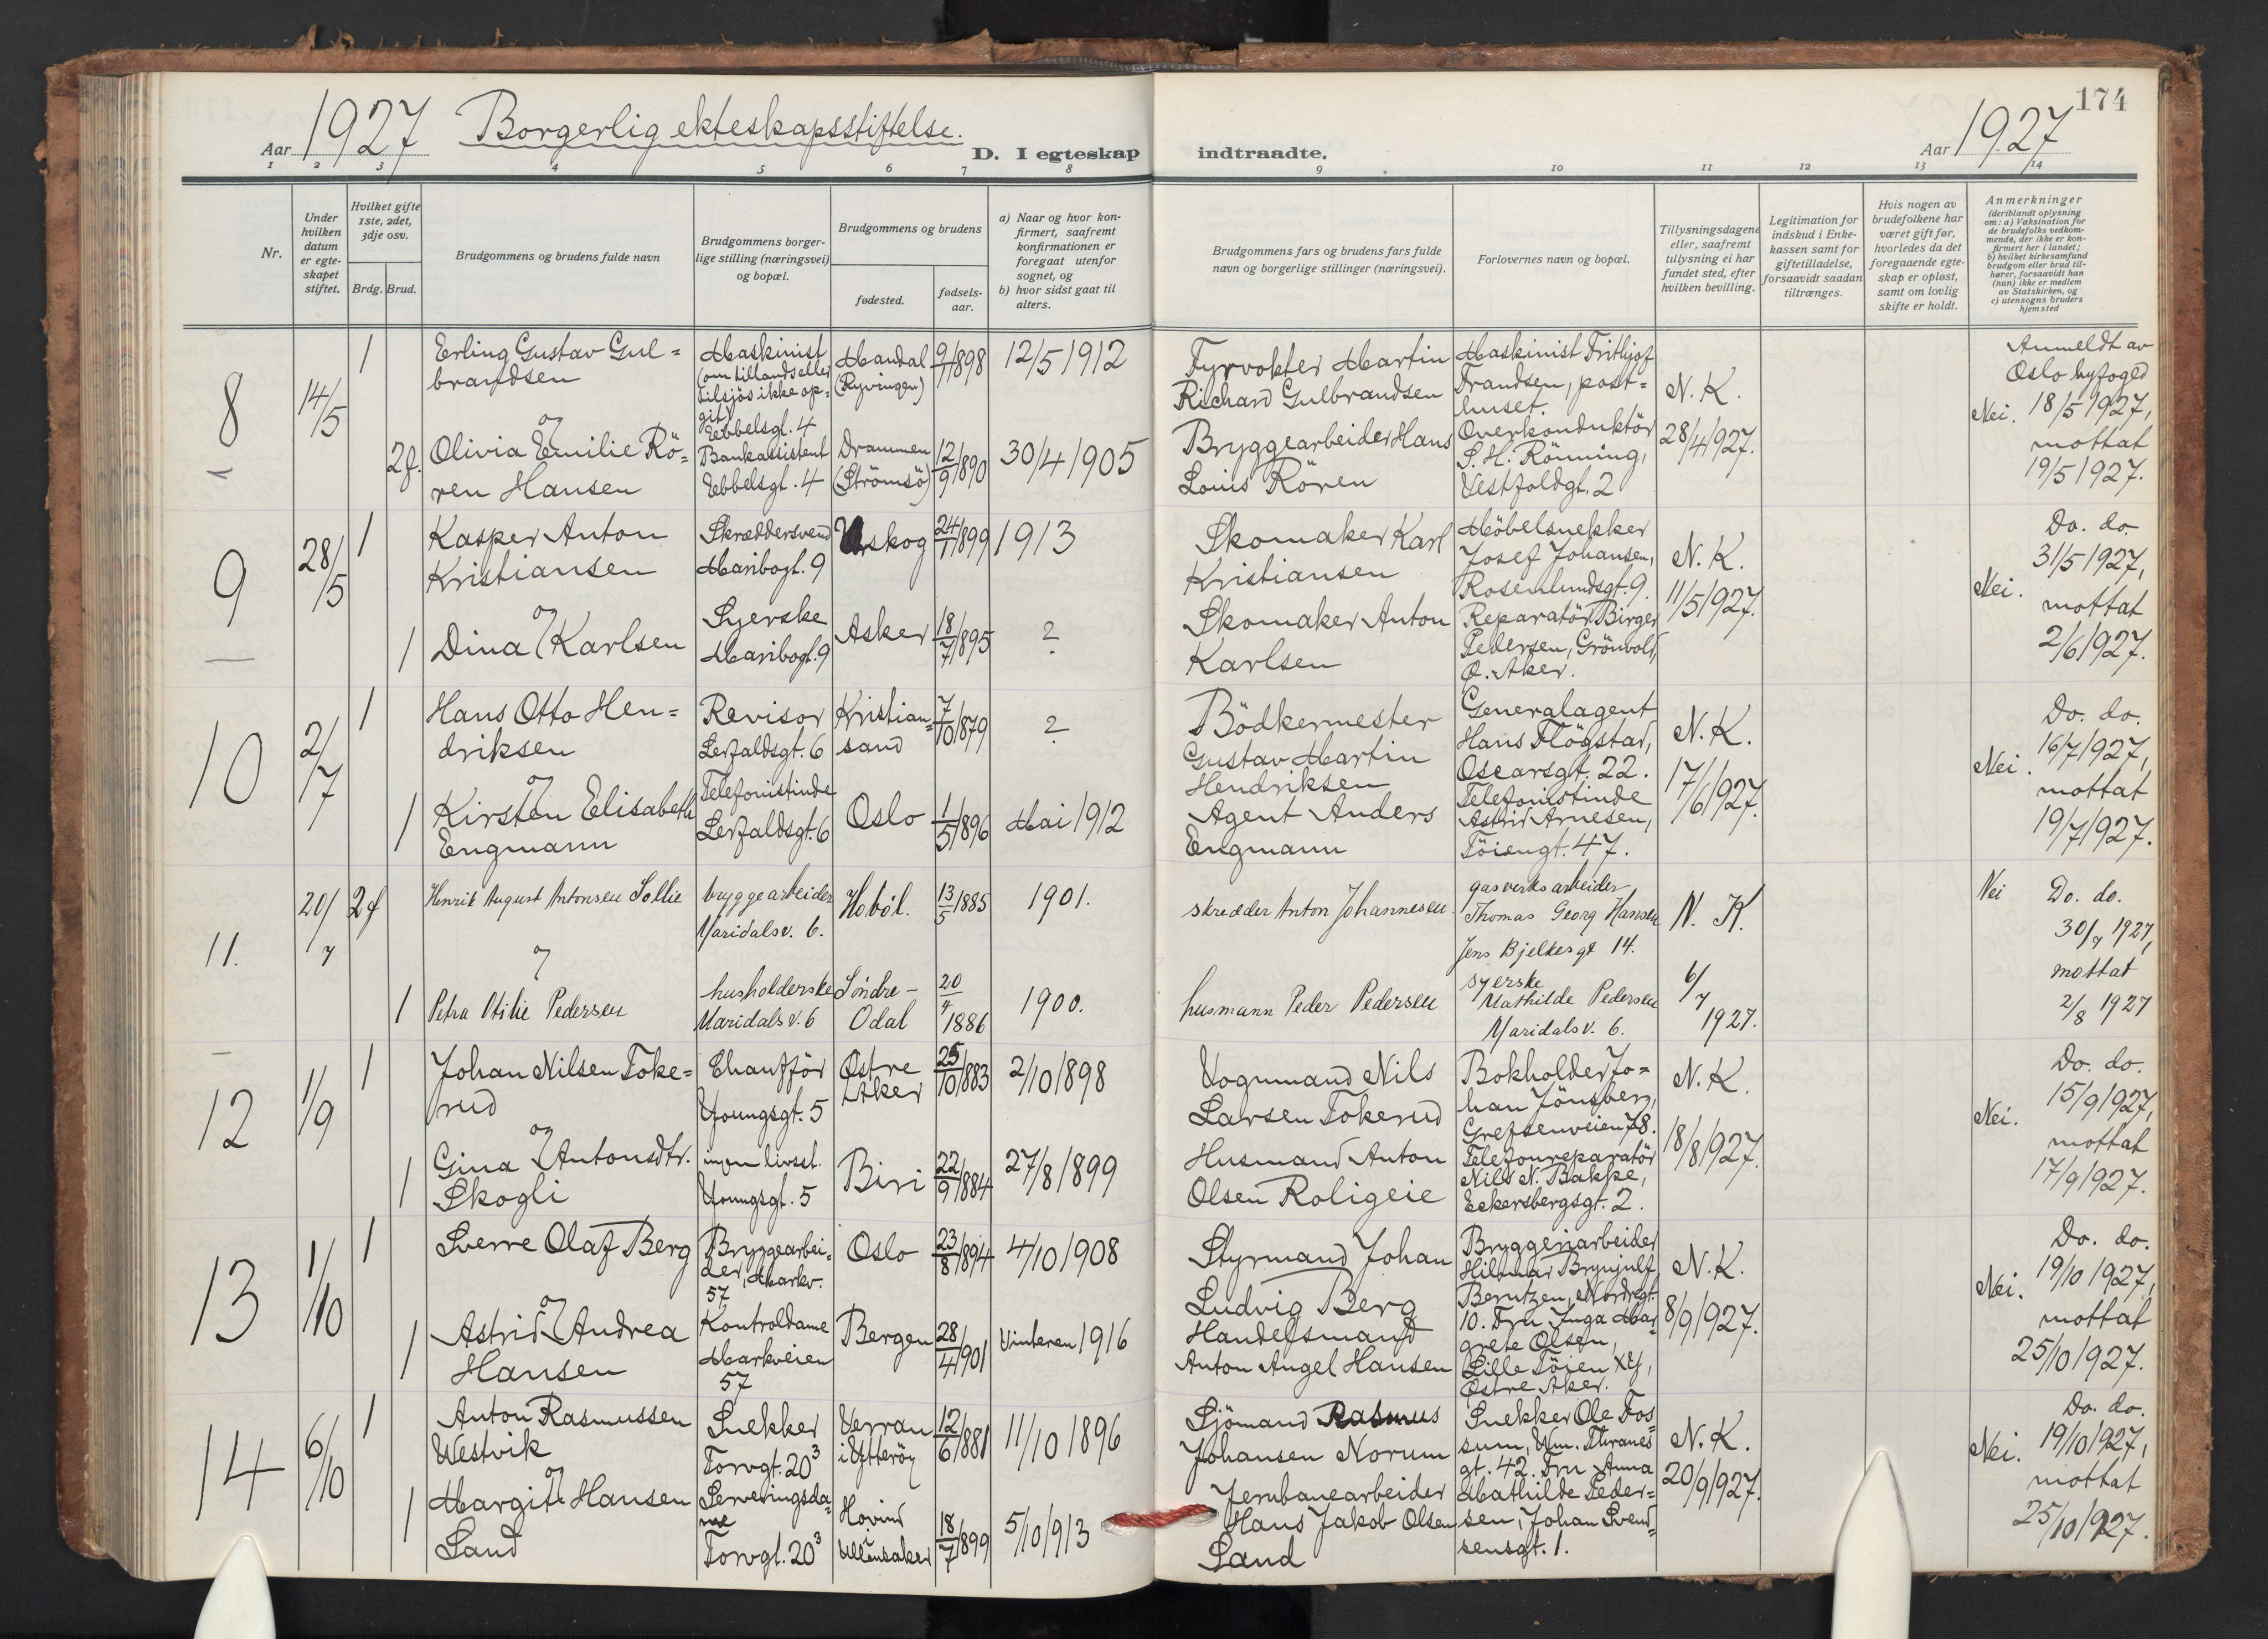 174
Aar 1927 Borgerlig ekteskapsstiftelse. D. I egteskap indtraadte. Aar 1927
1 2 3 4 5 6 7 8 9 10 11 12 13 14
Nr.
Under hvilken datum er egteskapet stiftet.
Hvilket gifte 1ste, 2det, 3dje osv.
Brdg. Brud.
Brudgommens og brudens fulde navn
Brudgommens borger-
lige stilling (næringsvei)
og bopæl.
Brudgommens og brudens
fødested.
fødsels-
aar.
a) Naar og hvor kon-
firmert, saafremt
konfirmationen er
foregaat utenfor
sognet, og
b) hvor sidst gaat til
alters.
Brudgommens fars og brudens fars fulde
navn og borgerlige stillinger (næringsvei).
Forlovernes navn og bopæl.
Tillysningsdagene
eller, saafremt
tillysning ei har
fundet sted, efter
hvilken bevilling.
Legitimation for
indskud i Enke-
kassen samt for
giftetilladelse,
forsaavidt saadan
tiltrænges.
Hvis nogen av
brudefolkene har
været gift før,
hvorledes da det
foregaaende egte-
skap er opløst,
samt om lovlig
skifte er holdt.
Anmerkninger
(deriblandt oplysning
om: a) Vaksination for
de brudefolks vedkom-
mende, der ikke er kon-
firmert her i landet;
b) hvilket kirkesamfund
brudgom eller brud til-
hører, forsaavidt han
(hun) ikke er medlem
av Statskirken, og
c) utensogns bruders
hjemsted
8
14/5
1
Erling Gustav Gul=
brandsen
og
Maskinist
(om tillands eller
tilsjøs ikke op-
git)
Ebbelsgt. 4
Mandal
(Ryvingen)
9/1 1898
12/5 1912
Fyrvokter Martin
Richard Gulbrandsen
Maskinist Frithjof
Frandsen, post=
huset.
N. K.
28/4 1927.
Nei.
Anmeldt av
Oslo byfoged
18/5 1927,
mottat
19/5 1927.
2g.
Olivia Emilie Rö=
ren Hansen
Bankassistent
Ebbelsgt. 4
Drammen
(Strömsö)
12/9 1890
30/4 1905
Bryggearbeider Hans
Louis Rören
Overkonduktör
S. H. Rönning,
Vestfoldgt. 2
9
28/5
1
Kasper Anton
Kristiansen
og
Skræddersvend
Maribogt. 9
24/1 1899
1913
Skomaker Karl
Kristiansen
Möbelsnekker
Josef Johansen,
Rosenlundsgt. 9.
N. K.
11/5 1927.
Nei.
Do. do.
31/5 1927,
mottat
2/6 1927.
1
Dina Karlsen
Syerske
Maribogt. 9
Asker
18/7 1895
?
Skomaker Anton
Karlsen
Reparatör Birger
Pedersen, Grönvold,
Ö. Aker.
10
2/7
1
Hans Otto Hen=
driksen
og
Revisor
Lerfaldsgt. 6
Kristian=
sand
7/10 1879
?
Bödkermester
Gustav Martin
Hendriksen
Generalagent
Hans Flögstad,
Oscarsgt. 22.
N. K.
17/6 1927.
Nei.
Do. do.
16/7 1927,
mottat
19/7 1927.
1
Kirsten Elisabeth
Engmann
Telefonistinde
Lerfaldsgt. 6
Oslo
1/5 1896
Mai 1912
Agent Anders
Engmann
Telefonistinde
Astrid Arnesen,
Töiengt. 47.
11.
20/7
2g
Henrik August Antonsen Sollie
og
bryggearbeider
Maridalsv. 6.
Hoböl.
13/5 1885
1901.
skredder Anton Johannesen
gasverksarbeider
Thomas Georg Hansen
Jens Bjelkesgt 14.
N. K.
6/7
1927.
Nei
Do. do.
30/7 1927,
mottat
2/8 1927
1
Petra Otilie Pedersen
husholderske
Maridalsv. 6
Söndre-
Odal
20/4
1886
1900.
husmann Peder Pedersen
syerske
Mathilde Pedersen
Maridalsv. 6.
12
1/9
1
Johan Nilsen Toke=
rud
og
Chauffør
Youngsgt. 5
Østre
Aker
25/10 1883
2/10 1898
Vognmand Nils
Larsen Tokerud
Bokholder Jo=
han Jönsberg,
Grefsenveien 78.
N. K.
18/8 1927.
Nei.
Do. do.
15/9 1927,
mottat
17/9 1927.
1
Gina Antonsdtr.
Skogli
ingen livsst.
Youngsgt. 5
Biri
22/9 1884
27/8 1899
Husmand Anton
Olsen Roligeie
Telefonreparatör
Nils N. Bakke,
Eckersbergsgt. 2.
13
1/10
1
Sverre Olaf Berg
og
Bryggearbei=
der, Markv.
57
Oslo
23/8 1894
4/10 1908
Styrmand Johan
Ludvig Berg
Bryggeriarbeider
Hilmar Brynjulf
Berntzen, Nordregt.
10. Fru Inga Mar-
grete Olsen,
Lille Töien
Østre Aker.
N. K.
8/9 1927.
Nei.
Do. do.
19/10 1927,
mottat
25/10 1927.
1
Astrid Andrea
Hansen
Kontroldame
Markveien
57
Bergen
28/4 1901
Vinteren 1916
Handelsmand
Anton Angel Hansen
14
6/10
1
Anton Rasmussen
Westvik
og
Snekker
Torvgt. 20³
Verran
i Ytterøy
12/6 1881
11/10 1896
Sjömand Rasmus
Johansen Norum
Snekker Ole Fos=
sum, Wm. Thranes
gt. 42. Fru Anna
Mathilde Peder=
sen, Johan Svend=
sensgt. 1.
N. K.
20/9 1927.
Nei.
Do. do.
19/10 1927,
mottat
25/10 1927.
1
Margit Hansen
Sand
Serveringsda=
me
Torvgt. 20³
Hovind
Ullensaker
18/7 1899
5/10 1913
Jernbanearbeider
Hans Jakob Olsen
Sand